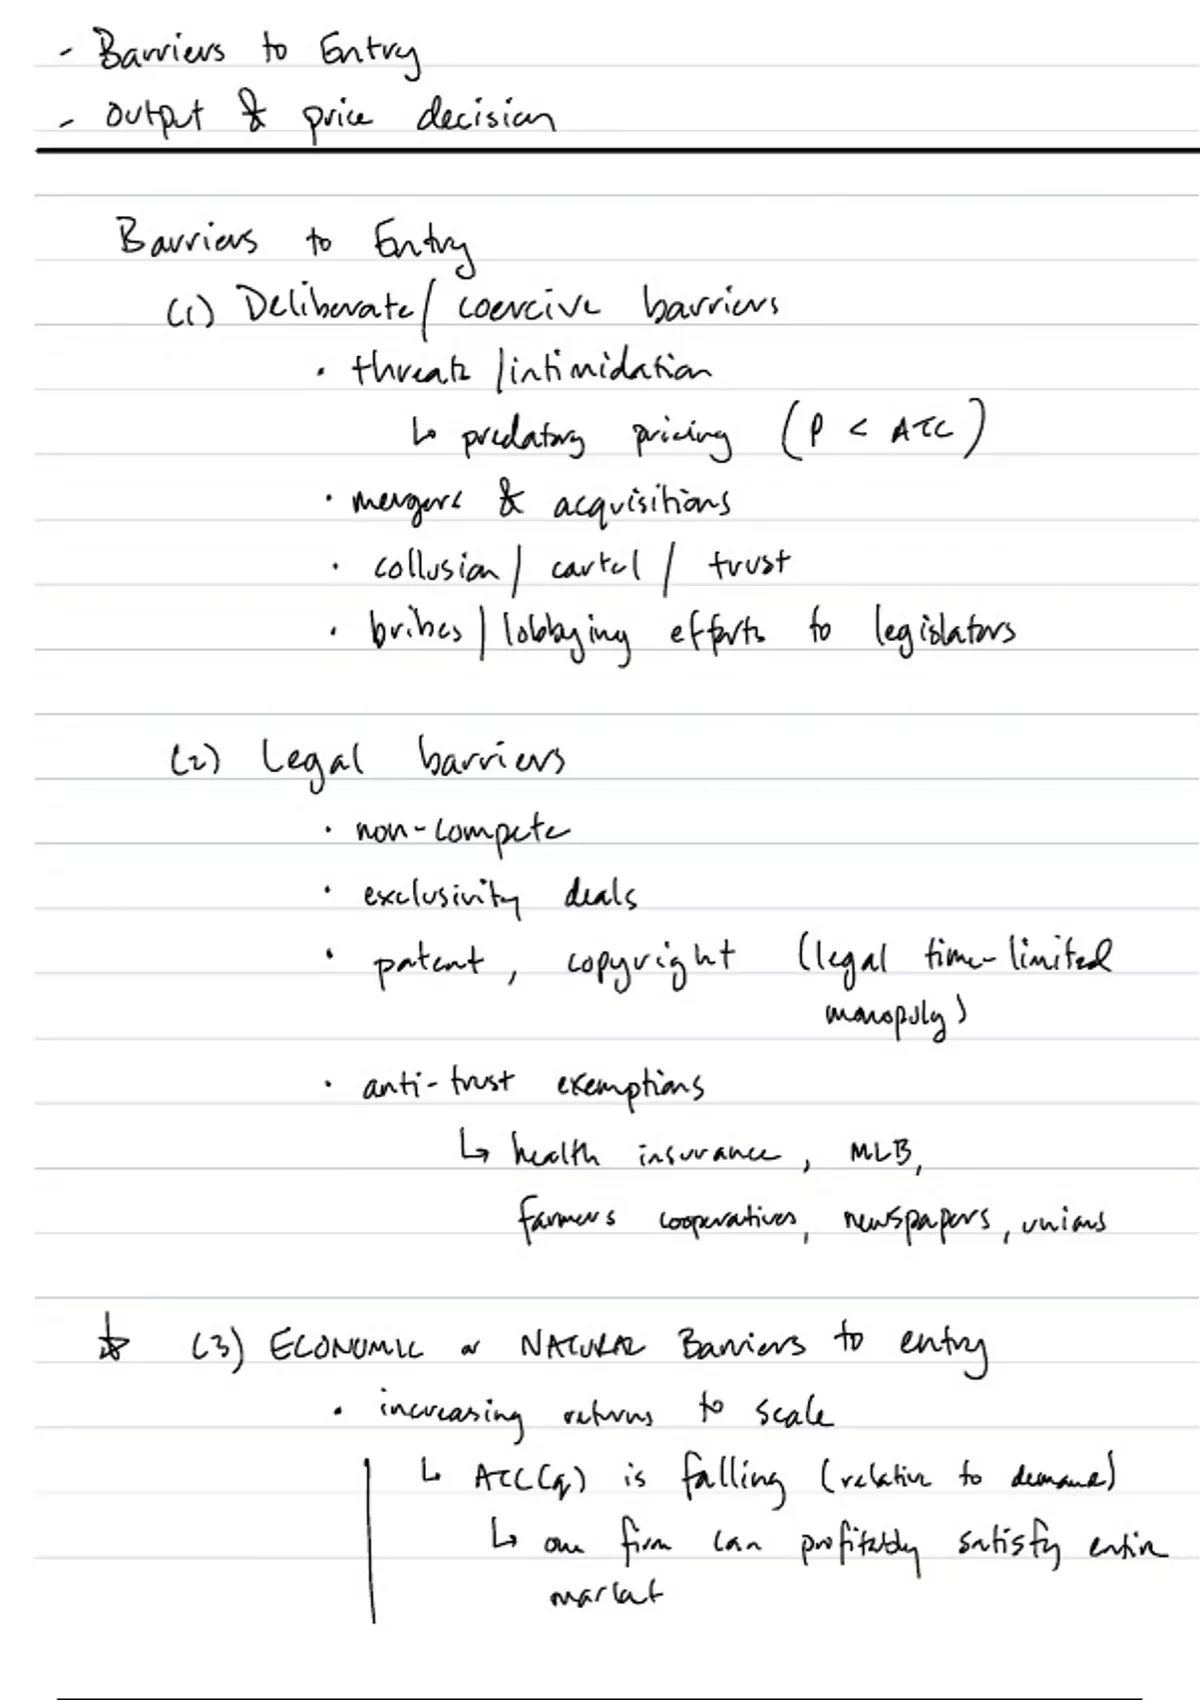 - Barriers to Entry
- Output & price decision
Barriers to Entry
(1) Deliberate/ coercive barriers
• threats /intimidation
↳ predatory pricing (P < ATC)
• mergers & acquisitions
• collusion/ cartel / trust
• bribes/lobbying efforts to legislators
(2) Legal barriers
• non-compete
• exclusivity deals
• patent, copyright (legal time-limited
monopoly)
• anti-trust exemptions
↳ health insurance, MLB,
farmers cooperatives, newspapers, unions
☆ (3) ECONOMIC or NATURAL Barriers to entry
• increasing returns to scale
↳ ATC(q) is falling (relative to demand)
↳ one firm can profitably satisfy entire
market